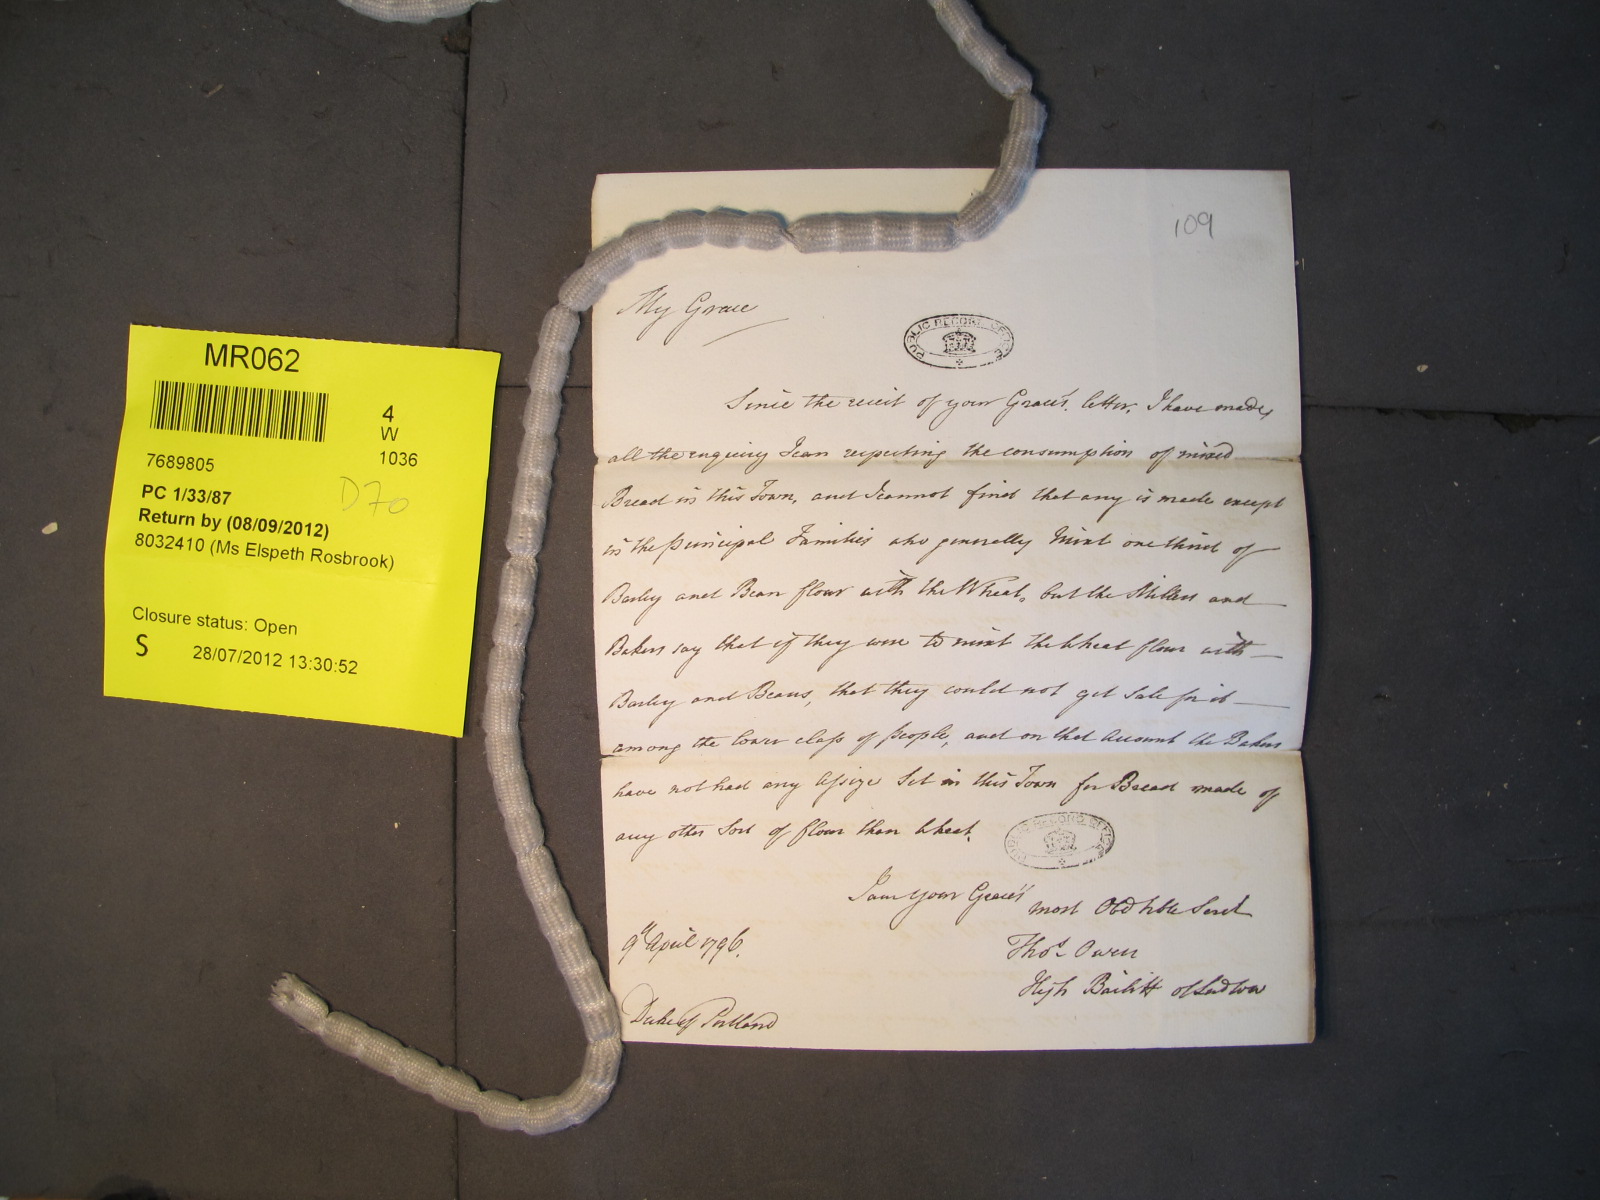 MR062
4
W
1036
7689805
PC 1/33/87
D70
Return by (08/09/2012)
8032410 (Ms Elspeth Rosbrook)
Closure status: Open
S
28/07/2012 13:30:52
109
My Grace
PUBLIC RECORD OFFICE
Since the receit of your Grace's letter, I have made
all the enquiry I can respecting the consumption of mixed
Bread in this Town, and I cannot find that any is made except
in the principal Families who generally mixt one third of
Barley and Bean flour with the Wheat, but the Millers and
Bakers say that if they were to mixt the Wheat flour with
Barley and Beans, that they could not get Sale for it
among the lower class of People, and on that Account the Bakers
have not had any Assize Set in this Town for Bread made of
any other Sort of flour than Wheat.
PUBLIC RECORD OFFICE
I am your Grace's
most Obd hble Servt
9th April 1796.
Thos. Owen
High Bailiff of Ludlow
Duke of Portland